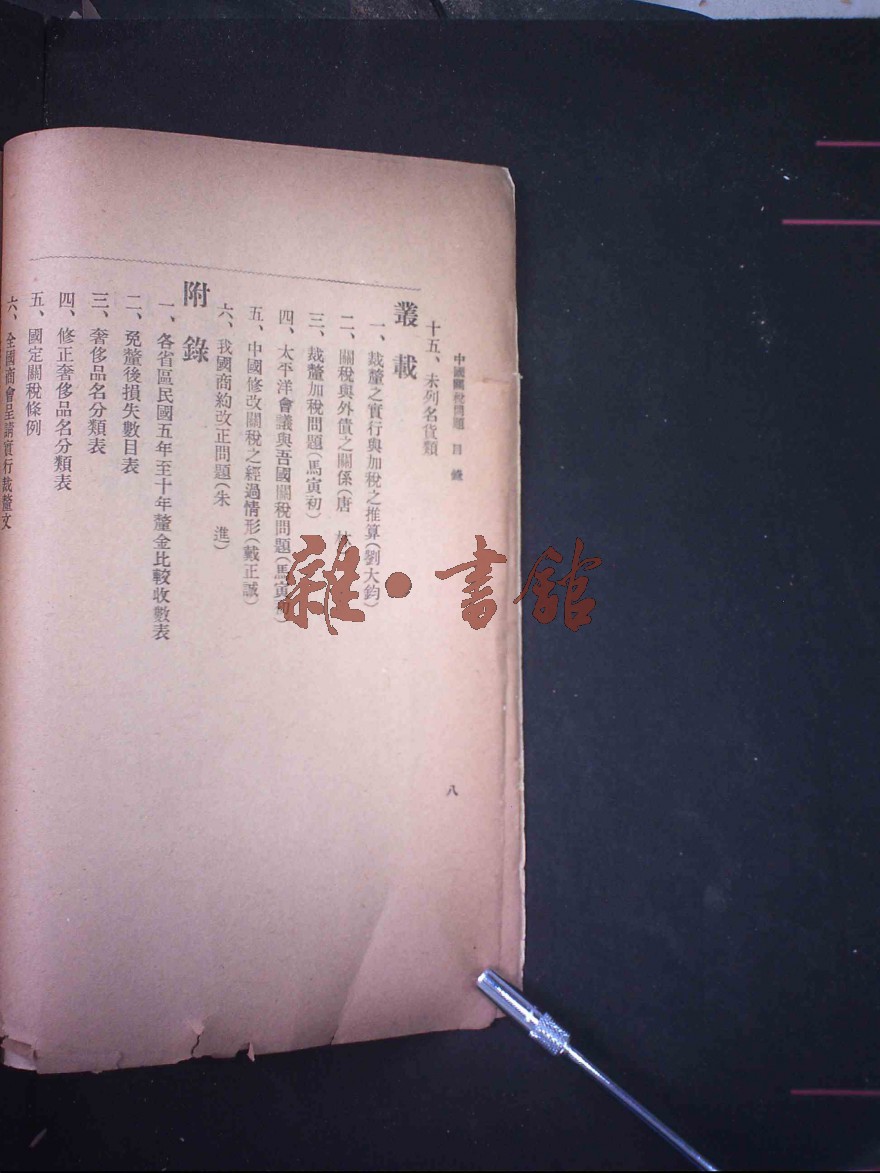 中國關稅問題　目錄
十五、未列名貨類
叢載
一、裁釐之實行與加稅之推算(劉大鈞)
二、關稅與外債之關係(唐　林)
三、裁釐加稅問題(馬寅初)
四、太平洋會議與吾國關稅問題(馬寅初)
五、中國修改關稅之經過情形(戴正誠)
六、我國商約改正問題(朱　進)
附錄
一、各省區民國五年至十年釐金比較收數表
二、免釐後損失數目表
三、奢侈品名分類表
四、修正奢侈品名分類表
五、國定關稅條例
六、全國商會呈請實行裁釐文
八
雜·書館